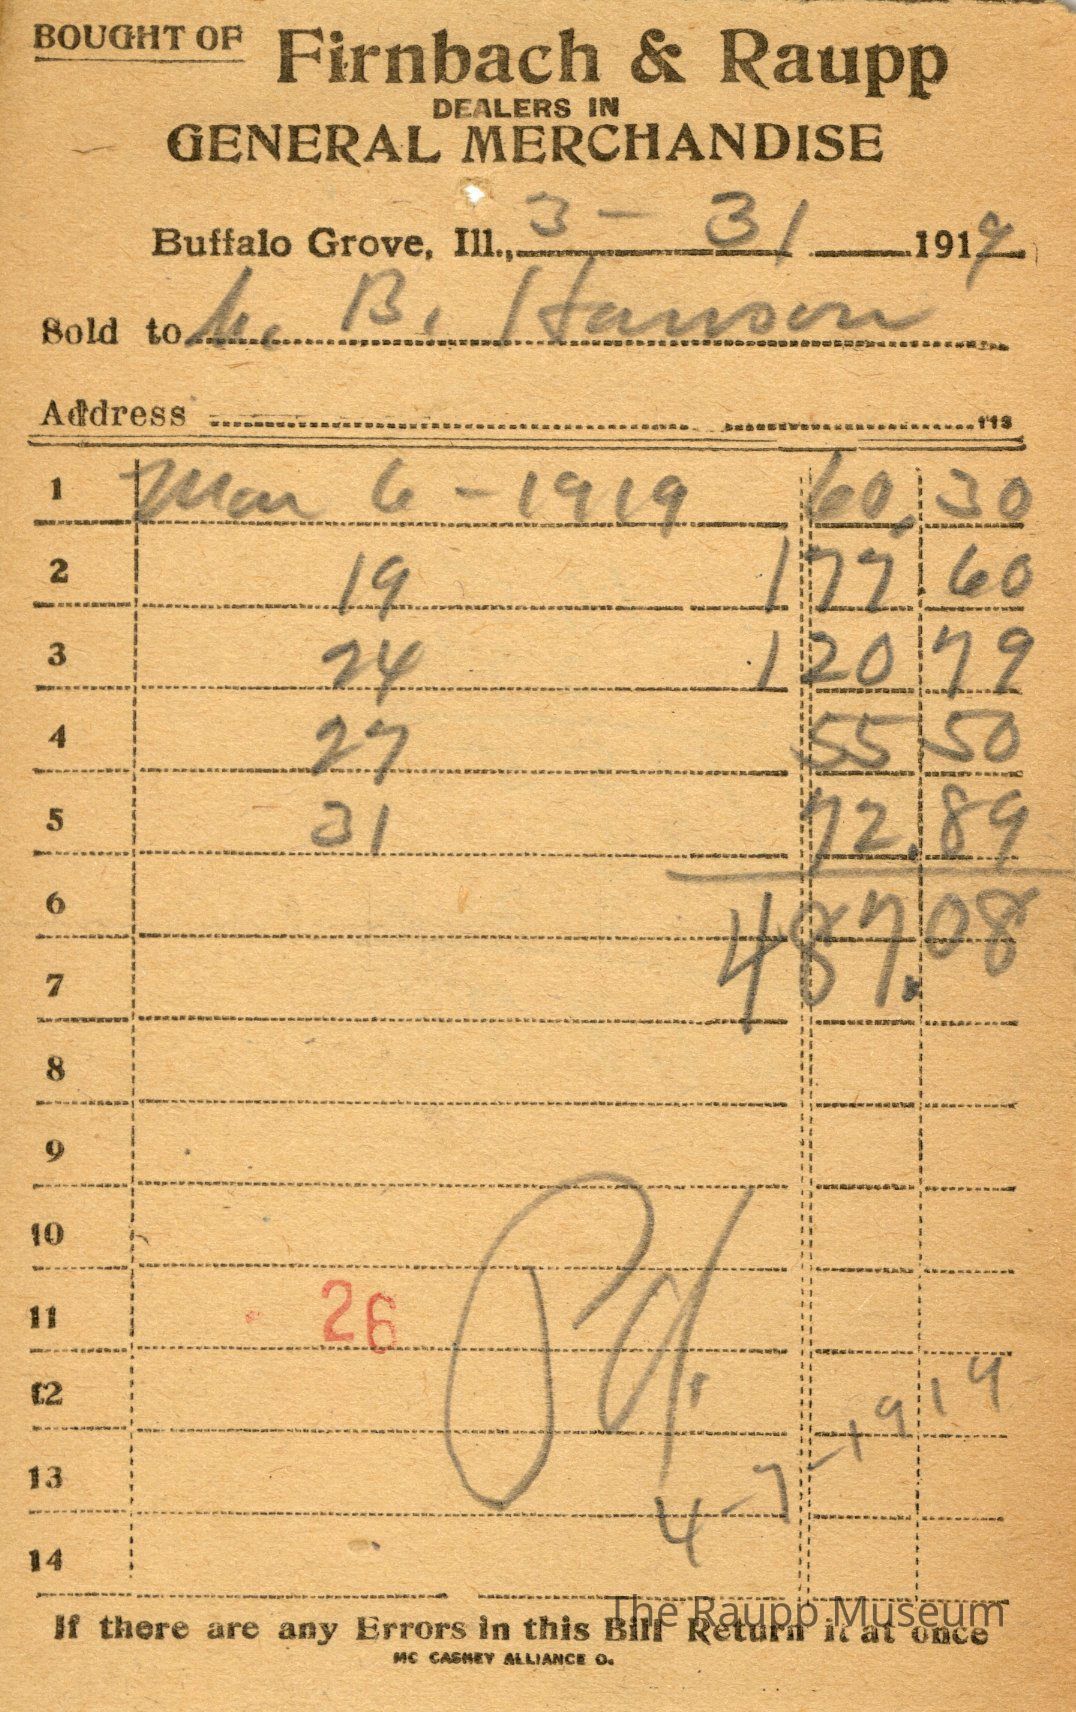 BOUGHT OF Firnbach & Raupp
DEALERS IN
GENERAL MERCHANDISE
Buffalo Grove, Ill., 3 - 31 1919
Sold to B. Hanson
Address
1 Mar 6 - 1919 60.30
2 19 177.60
3 24 120 79
4 27 55 50
5 31 72.89
6 487.08
7
8
9
10
11 26
12
Pd.
13 4-7-1919
14
The Raupp Museum
If there are any Errors in this Bill Return it at once
MC CASKEY ALLIANCE O.